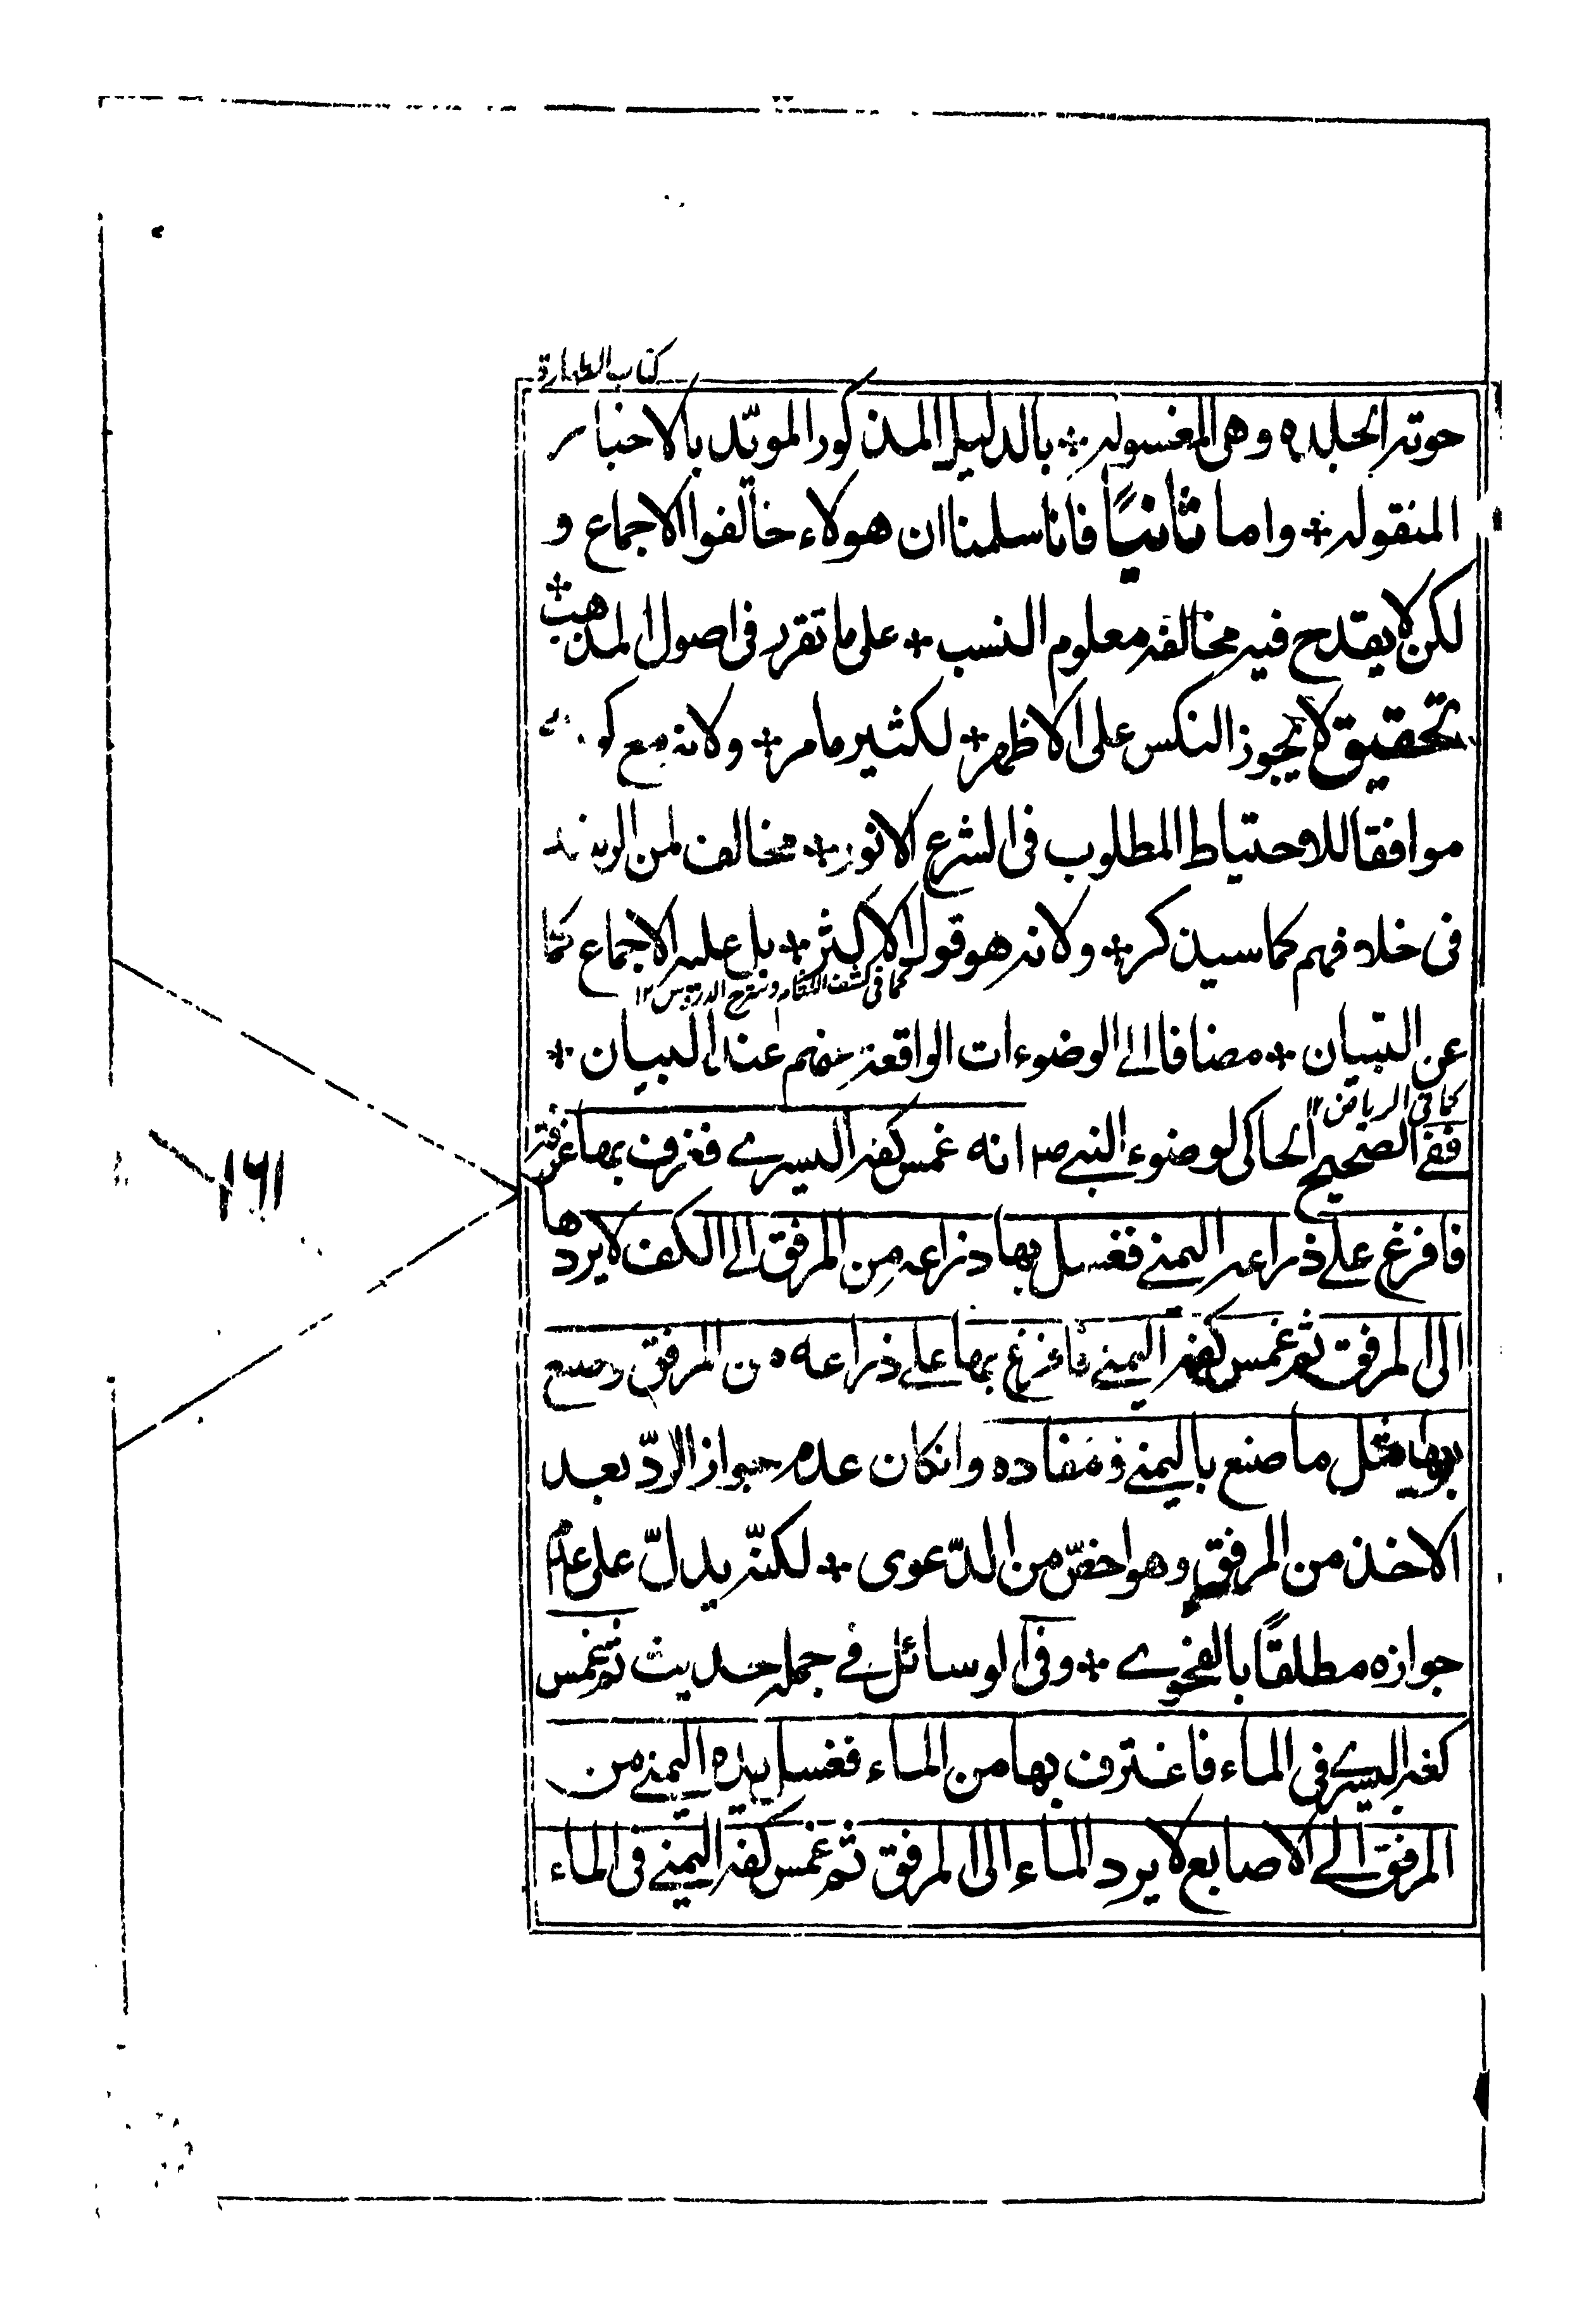 كتاب الطهارة
حوته الجلدة وهى المغسوله + بالدليل المذكور الموبّد بالاخبار
المنقوله + واما ثانيًا فانا سلمنا ان هولاء خالفوا الاجماع و
لكن لا يقدح فيه مخالفه معلوم النسب + على ما تقرر فى اصول المذهب +
تحقيق لا يجوز النكس على الاظهر + لكثير مامر + ولانه مع
موافقا للاحتياط المطلوب فى الشرع الانور + مخالف لمن الرشد
فى خلافهم كما سيذكر + ولانه هو قول الاكثر + بل عليه الاجماع كما
كما فى كشف اللثام وشرح الدروس ١٢
عن التبيان + مضافا الى الوضوءات الواقعة منهم عند البيان +
كما فى الرياض ١٢
ففى الصحيح الحاكى لوضوء النبي ص انه غمس كفه اليسرے فغرف بها غرفة
فافرغ على ذراعه اليمنے فغسل بها ذراعه من المرفق الى الكف لا يردها
الى المرفق ثم غمس كفه اليمنے فافرغ بها على ذراعه من المرفق وصنع
بها مثل ما صنع باليمنے ومفاده وانكان عدم جواز الردّ بعد
الاخذ من المرفق وهو اخصّ من الدّعوى + لكنّه يدلّ على عدم
جوازه مطلقًا بالفحوے + وفى الوسائل فے جملة حديث ثم غمس
كفه اليسرے فى الماء فاغترف بها من الماء فغسل يده اليمنے من
المرفق الے الاصابع لا يرد الماء الى المرفق ثم غمس كفه اليمنے فى الماء
١٦١